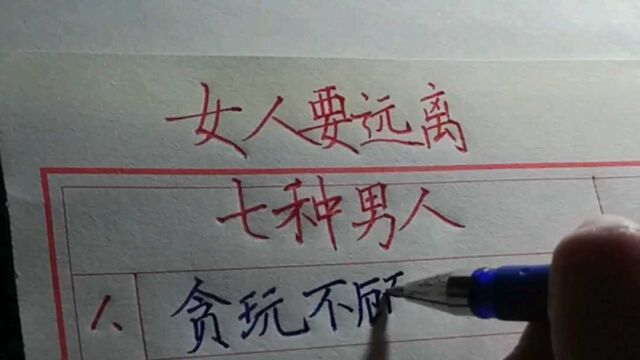 女人要远离
七种男人
1、贪玩不顾